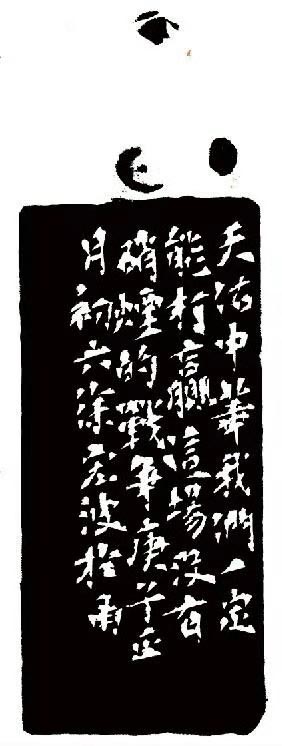 天佑中華我們一定
能打贏這場没有
硝煙的戰争庚子正
月初六徐宏波於甬